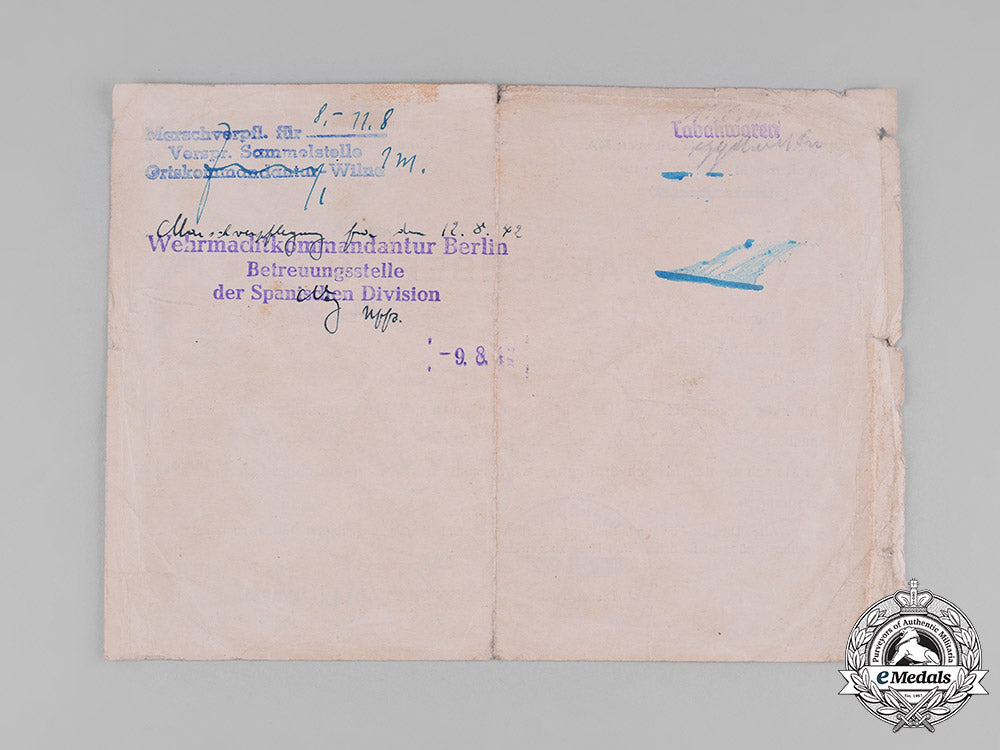 8.- 11.8
Marschverpfl. für
Verspr. Sammelstelle
Ortskommandantur Wilna
Marschverpflegung für den 12.8.42
Wehrmachtkommandantur Berlin
Betreuungsstelle
der Spanischen Division
Uffz.
-9. 8. 42
Tabakwaren
Purveyors of Authentic Militaria
eMedals